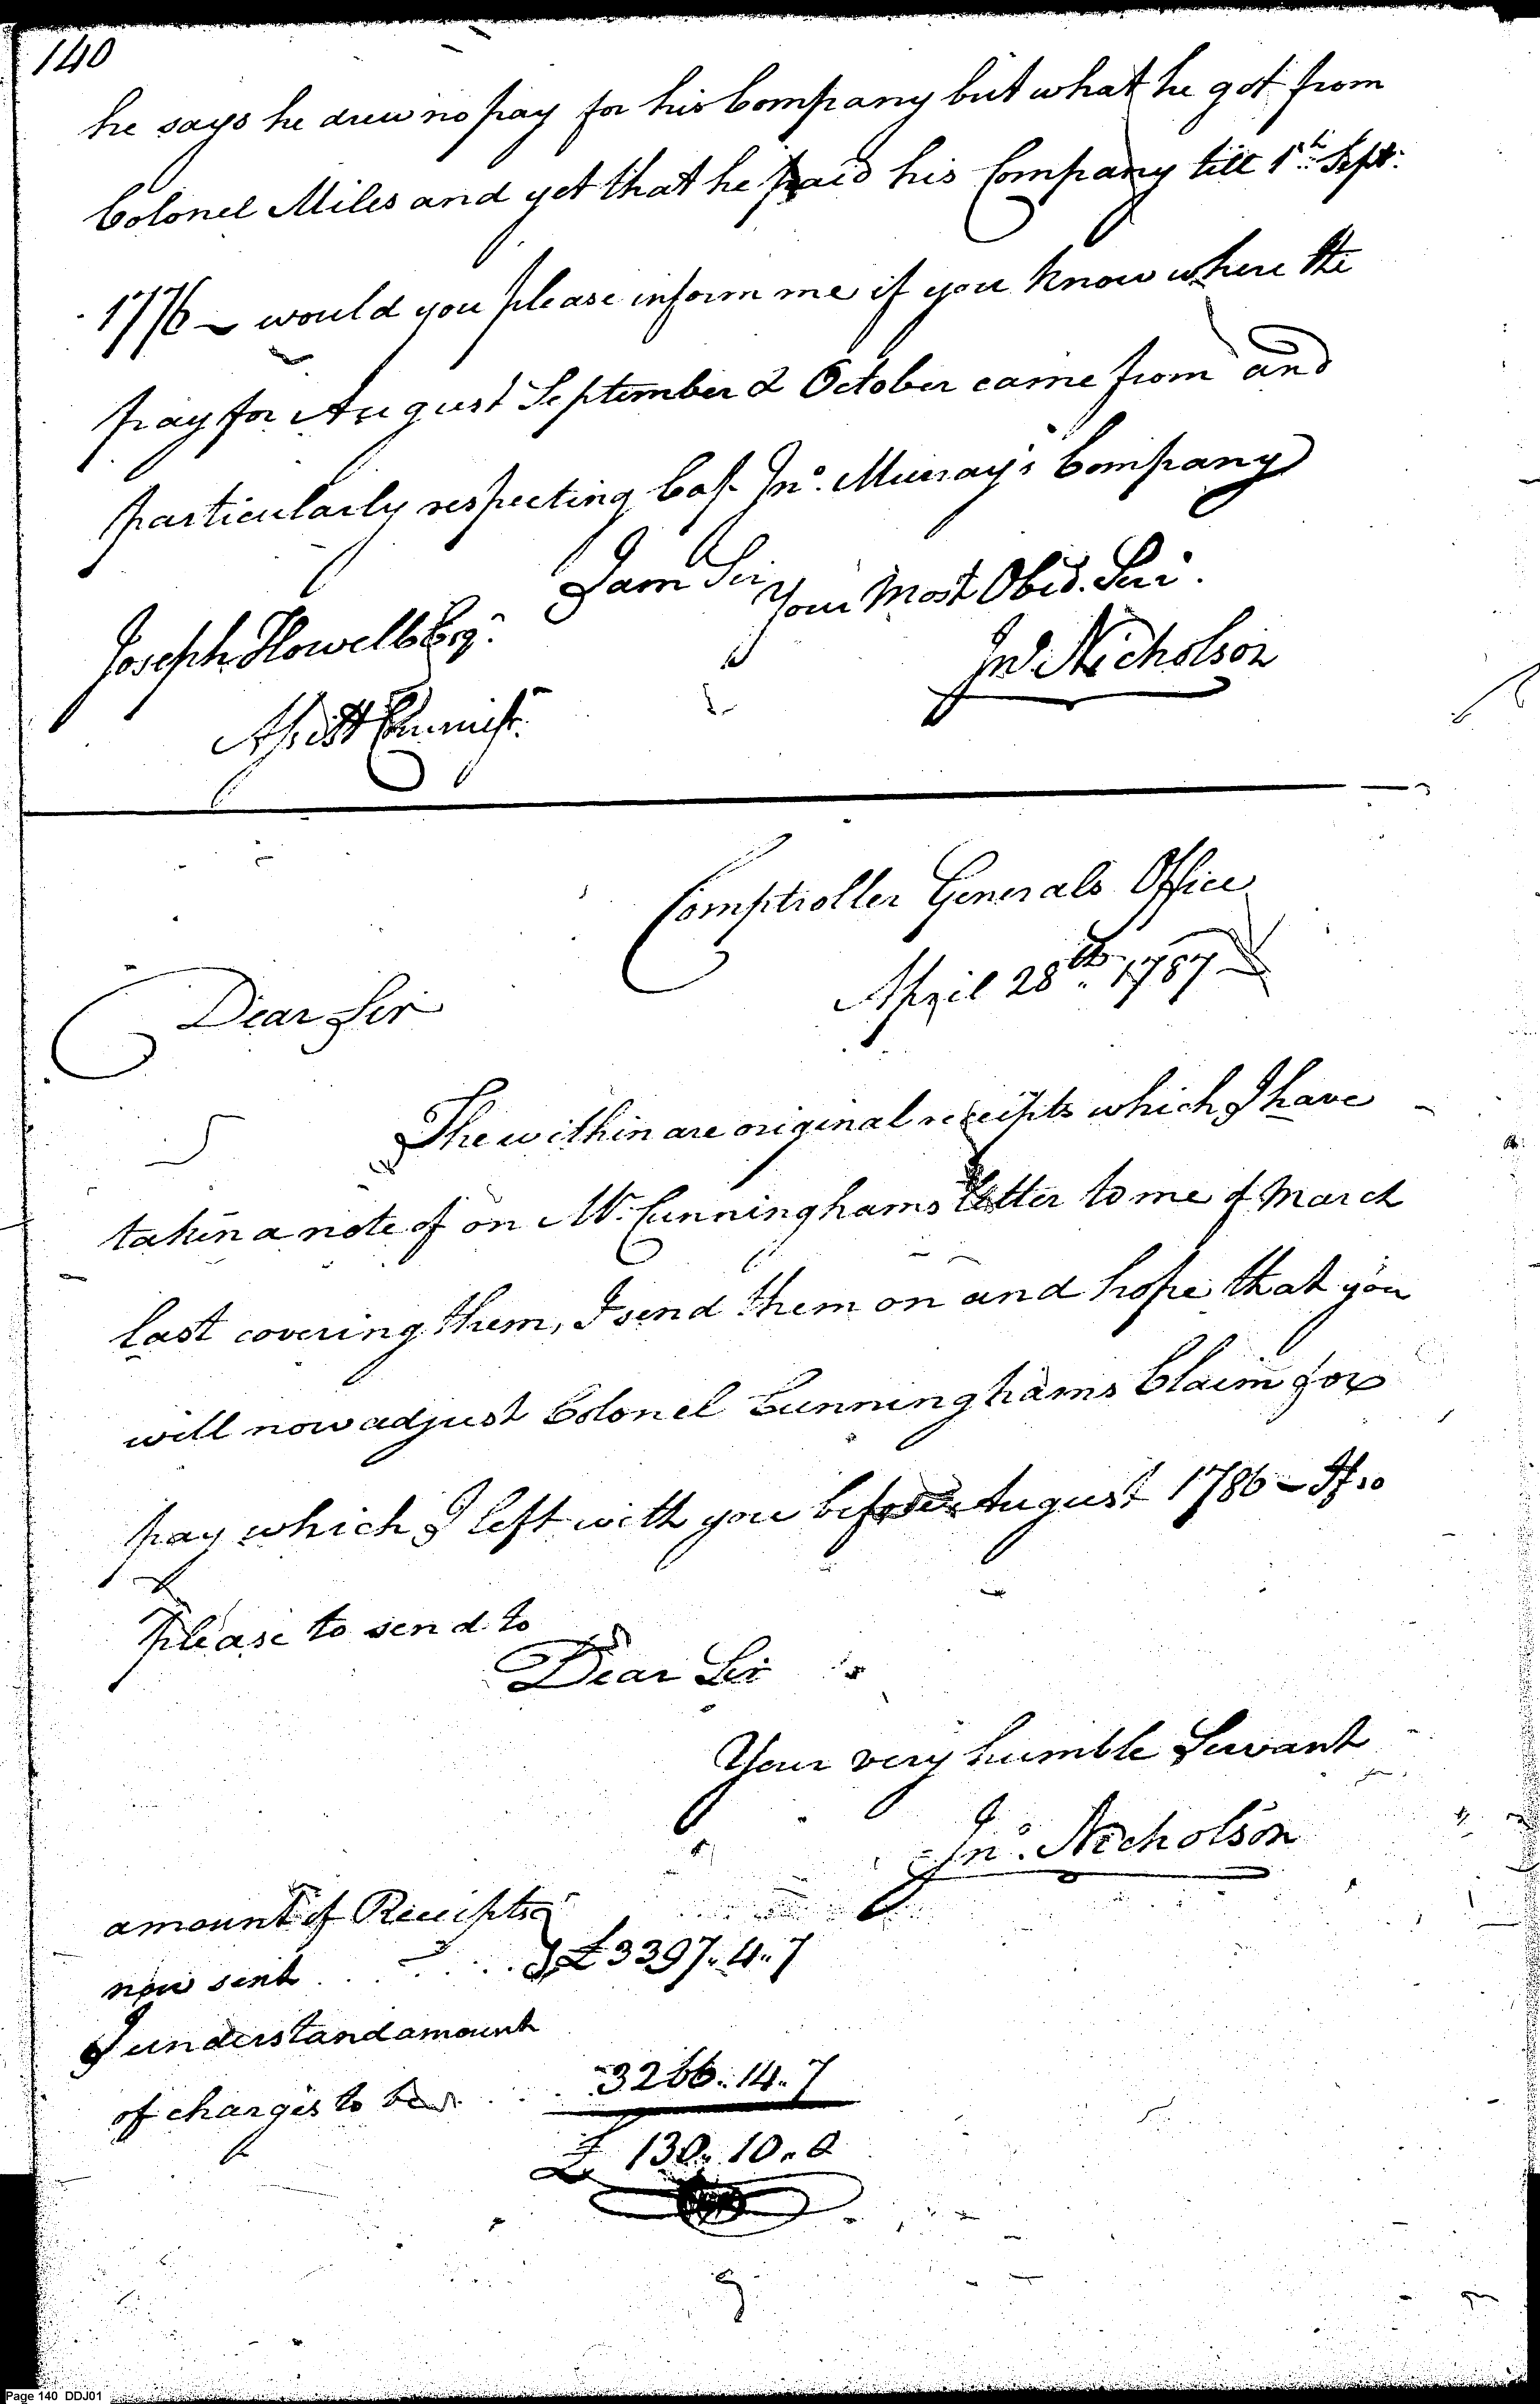 140
he says he drew no pay for his Company but what he got from
Colonel Miles and yet that he paid his Company till 1st Sept.
1776 – would you please inform me if you know where the
pay for August September & October came from and
particularly respecting Cap. Jno. Murray's Company
I am Sir
Your Most Obed. Ser.
Joseph Howell Esq.
Jno. Nicholson
Assist Commissr.
Comptroller Generals Office
April 28th 1787
Dear Sir
The within are original receipts which I have
taken a note of on Mr. Cunninghams letter to me of March
last covering them, I send them on and hope that you
will now adjust Colonel Cunninghams Claim for
pay which I left with you before August 1786 – If so
please to send to
Dear Sir
Your very humble Servant
Jno. Nicholson
amount of Receipts
now sent . . . . . . £3397.. 4.. 7
I understand amount
of charges to be . . . 3266.. 14.. 7
£ 130.. 10.. 0
Page 140 DDJ01